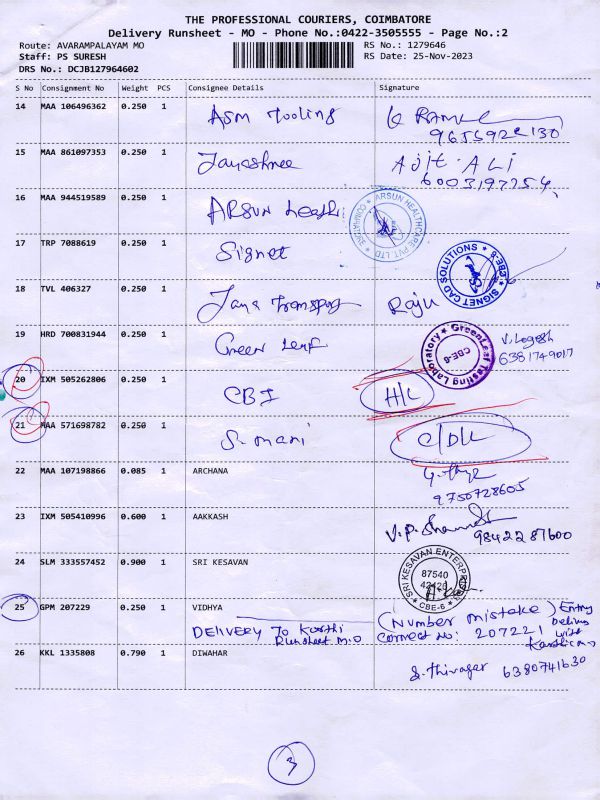 THE PROFESSIONAL COURIERS, COIMBATORE
Delivery Runsheet - MO - Phone No.:0422-3505555 - Page No.:2
Route: AVARAMPALAYAM MO
RS No.: 1279646
Staff: PS SURESH
RS Date: 25-Nov-2023
DRS No.: DCJB127964602
S No Consignment No Weight PCS Consignee Details Signature
14 MAA 106496362 0.250 1 ASM Tooling
15 MAA 861097353 0.250 1 Jayashree AJIT. ALI
6003197254
16 MAA 944519589 0.250 1 ARSUN ARSUN HEALTHCARE PVT. LTD COIMBATORE
17 TRP 7088619 0.250 1 Signet SIGNET CAD SOLUTIONS CBE-6
18 TVL 406327 0.250 1 Raju
19 HRD 700831944 0.250 1 Green Leaf GreenLeaf Testing Laboratory CBE-6 V. Logesh
6381749017
20 IXM 505262806 0.250 1 CBI H/L
21 MAA 571698782 0.250 1 S. mani C/D/L
22 MAA 107198866 0.085 1 ARCHANA
9750728605
23 IXM 505410996 0.600 1 AAKKASH
9842287600
24 SLM 333557452 0.900 1 SRI KESAVAN SRI KESAVAN ENTERPRISE
87540
42420
CBE-6
25 GPM 207229 0.250 1 VIDHYA (Number mistake) Entry
DELIVERY To Karthi Correct No: 207221 Delivery with
Runsheet M.O Karthi
26 KKL 1335808 0.790 1 DIWAHAR S. Thivagar 6380741630
3